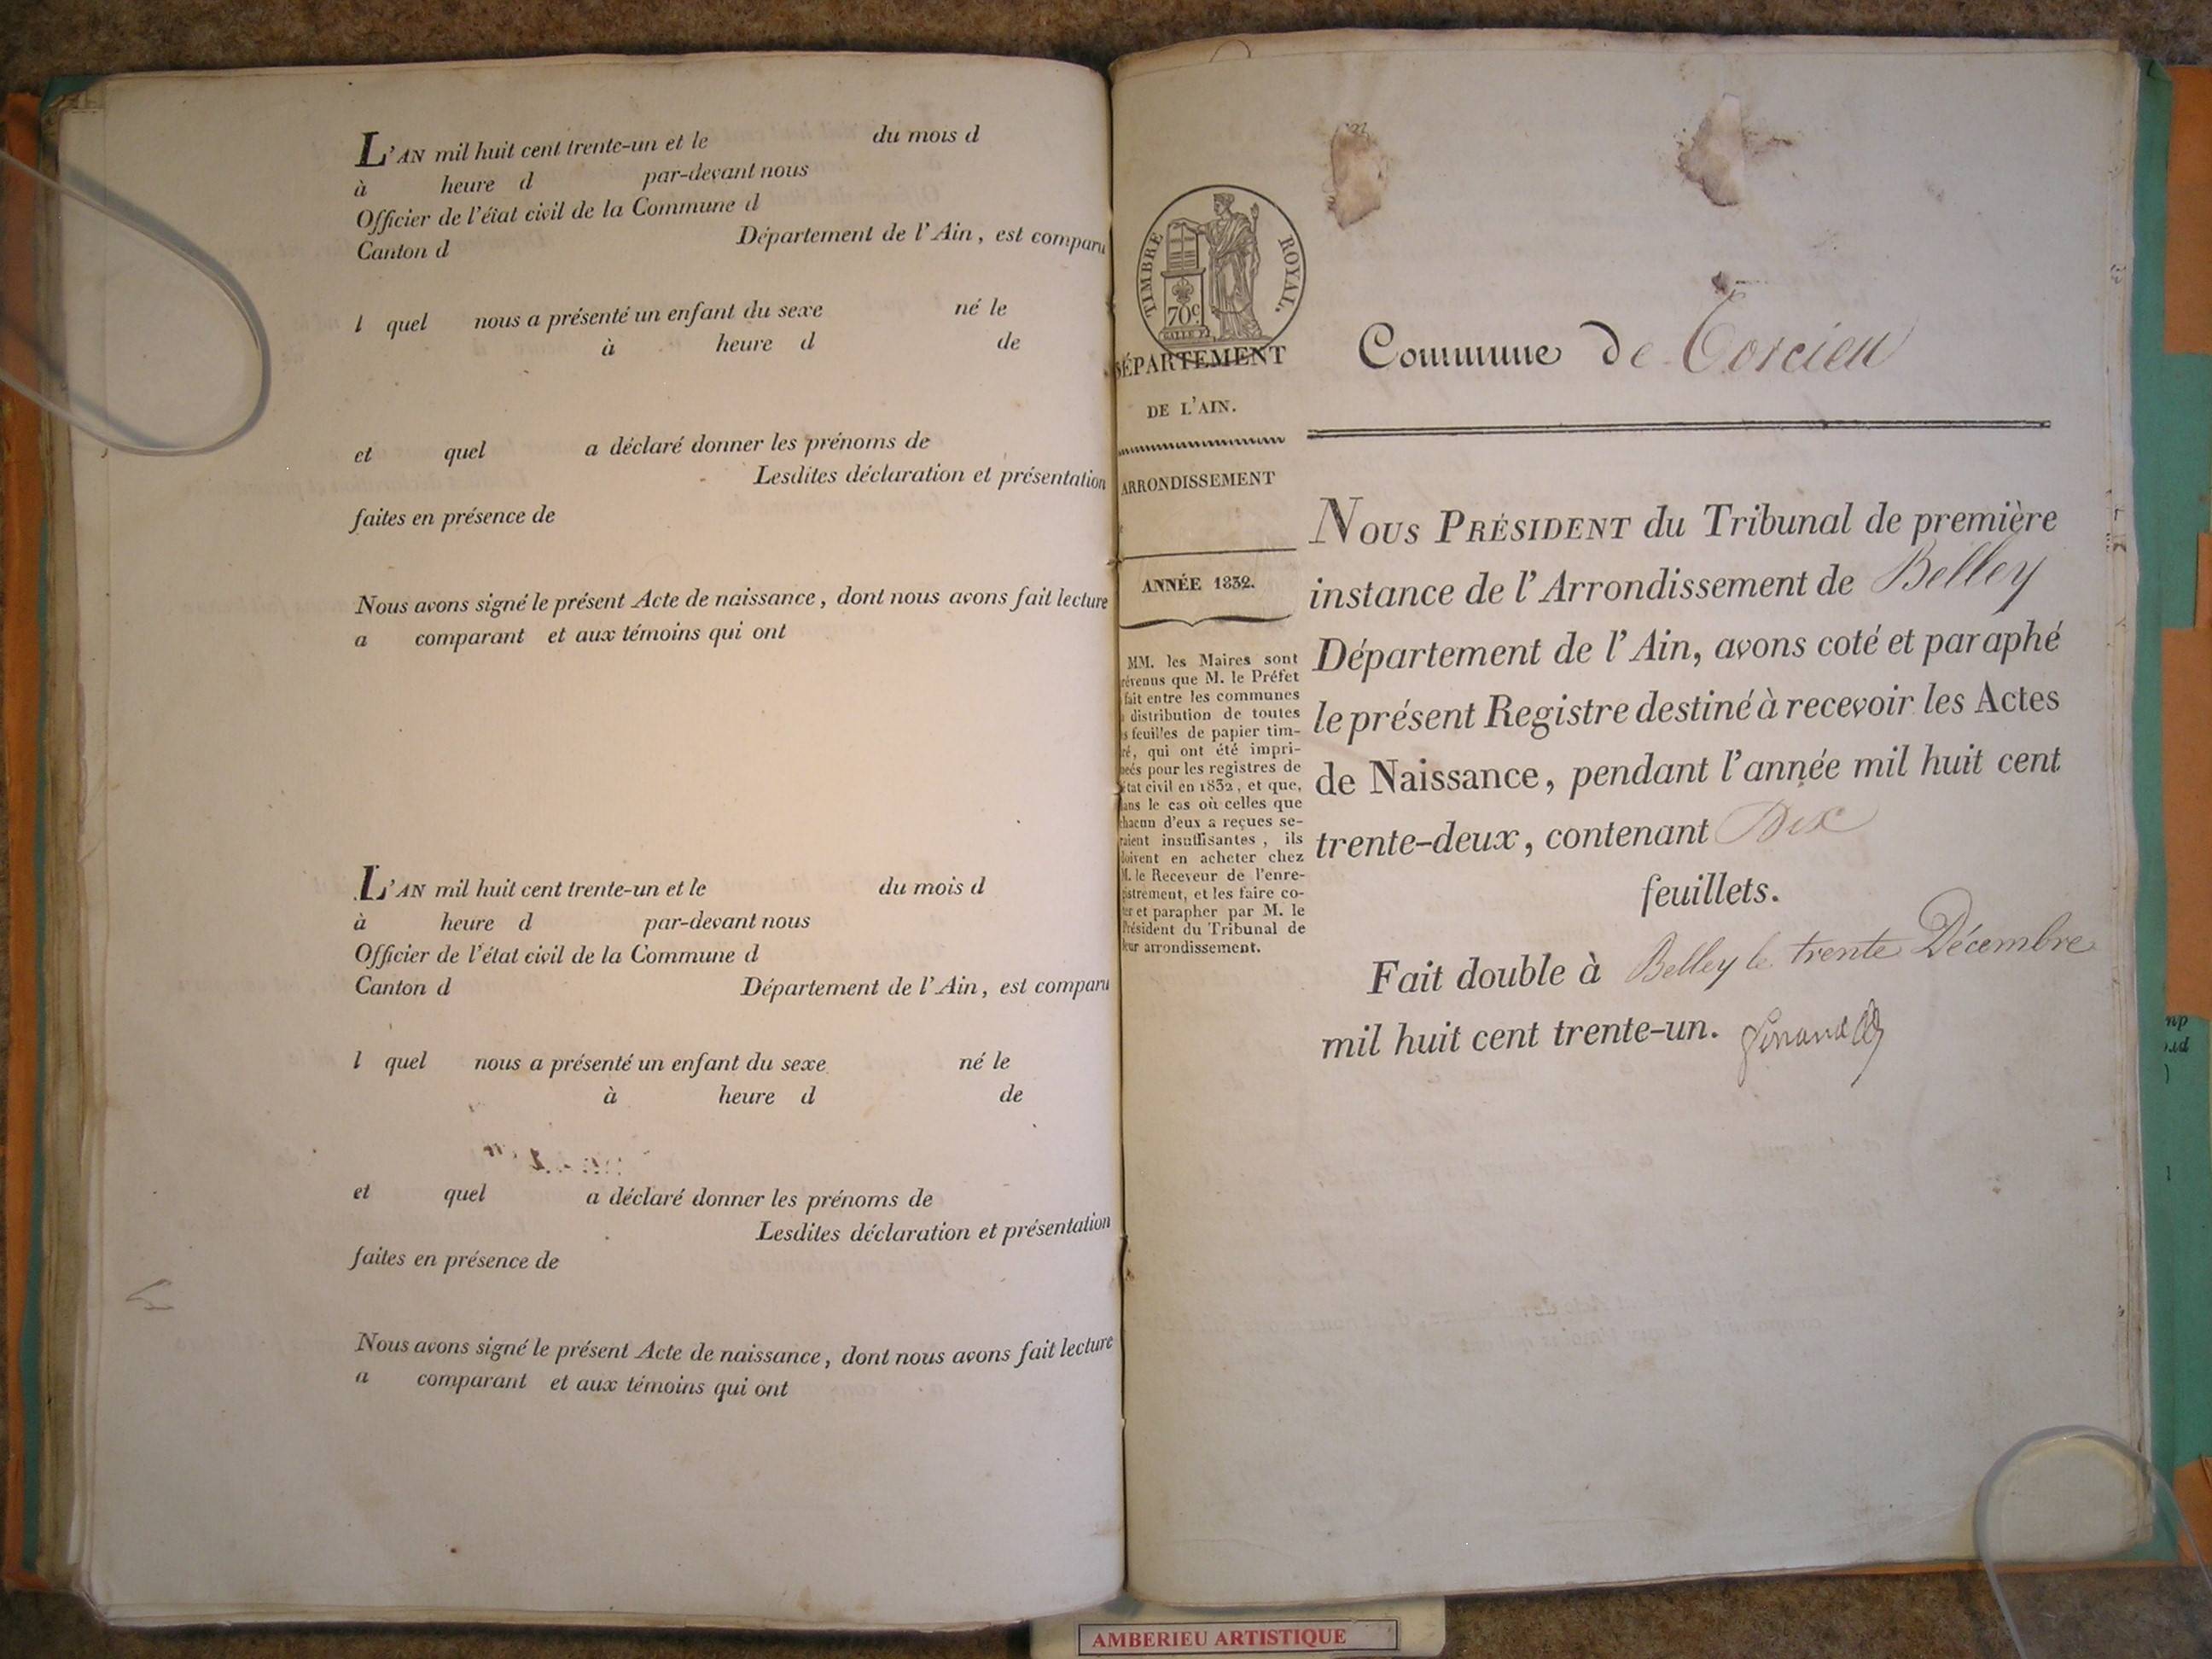 L'AN mil huit cent trente-un et le du mois d
à heure d par-devant nous
Officier de l'état civil de la Commune d
Canton d Département de l'Ain, est comparu
l quel nous a présenté un enfant du sexe né le
à heure d de
et quel a déclaré donner les prénoms de
Lesdites déclaration et présentation
faites en présence de
Nous avons signé le présent Acte de naissance, dont nous avons fait lecture
a comparant et aux témoins qui ont
L'AN mil huit cent trente-un et le du mois d
à heure d par-devant nous
Officier de l'état civil de la Commune d
Canton d Département de l'Ain, est comparu
l quel nous a présenté un enfant du sexe né le
à heure d de
et quel a déclaré donner les prénoms de
Lesdites déclaration et présentation
faites en présence de
Nous avons signé le présent Acte de naissance, dont nous avons fait lecture
a comparant et aux témoins qui ont
TIMBRE ROYAL.
70c
DÉPARTEMENT
DE L'AIN.
ARRONDISSEMENT
ANNÉE 1832.
MM. les Maires sont
révenus que M. le Préfet
fait entre les communes
distribution de toutes
s feuilles de papier tim-
ré, qui ont été impri-
meés pour les registres de
état civil en 1832, et que,
ans le cas où celles que
chacun d'eux a reçues se-
raient insuffisantes, ils
doivent en acheter chez
M. le Receveur de l'enre-
gistrement, et les faire co-
ter et parapher par M. le
Président du Tribunal de
leur arrondissement.
Commune de Torcieu
NOUS PRÉSIDENT du Tribunal de première
instance de l'Arrondissement de Belley
Département de l'Ain, avons coté et paraphé
le présent Registre destiné à recevoir les Actes
de Naissance, pendant l'année mil huit cent
trente-deux, contenant Dix
feuillets.
Fait double à Belley le trente Décembre
mil huit cent trente-un.
AMBERIEU ARTISTIQUE